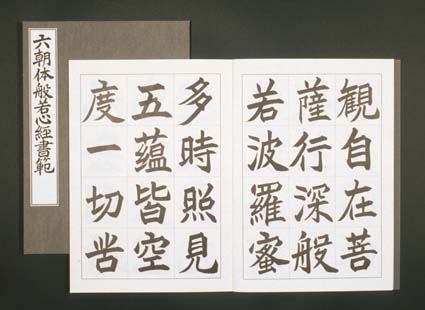 六朝体般若心經書範
観自在菩
薩行深般
若波羅蜜
多時照見
五蘊皆空
度一切苦